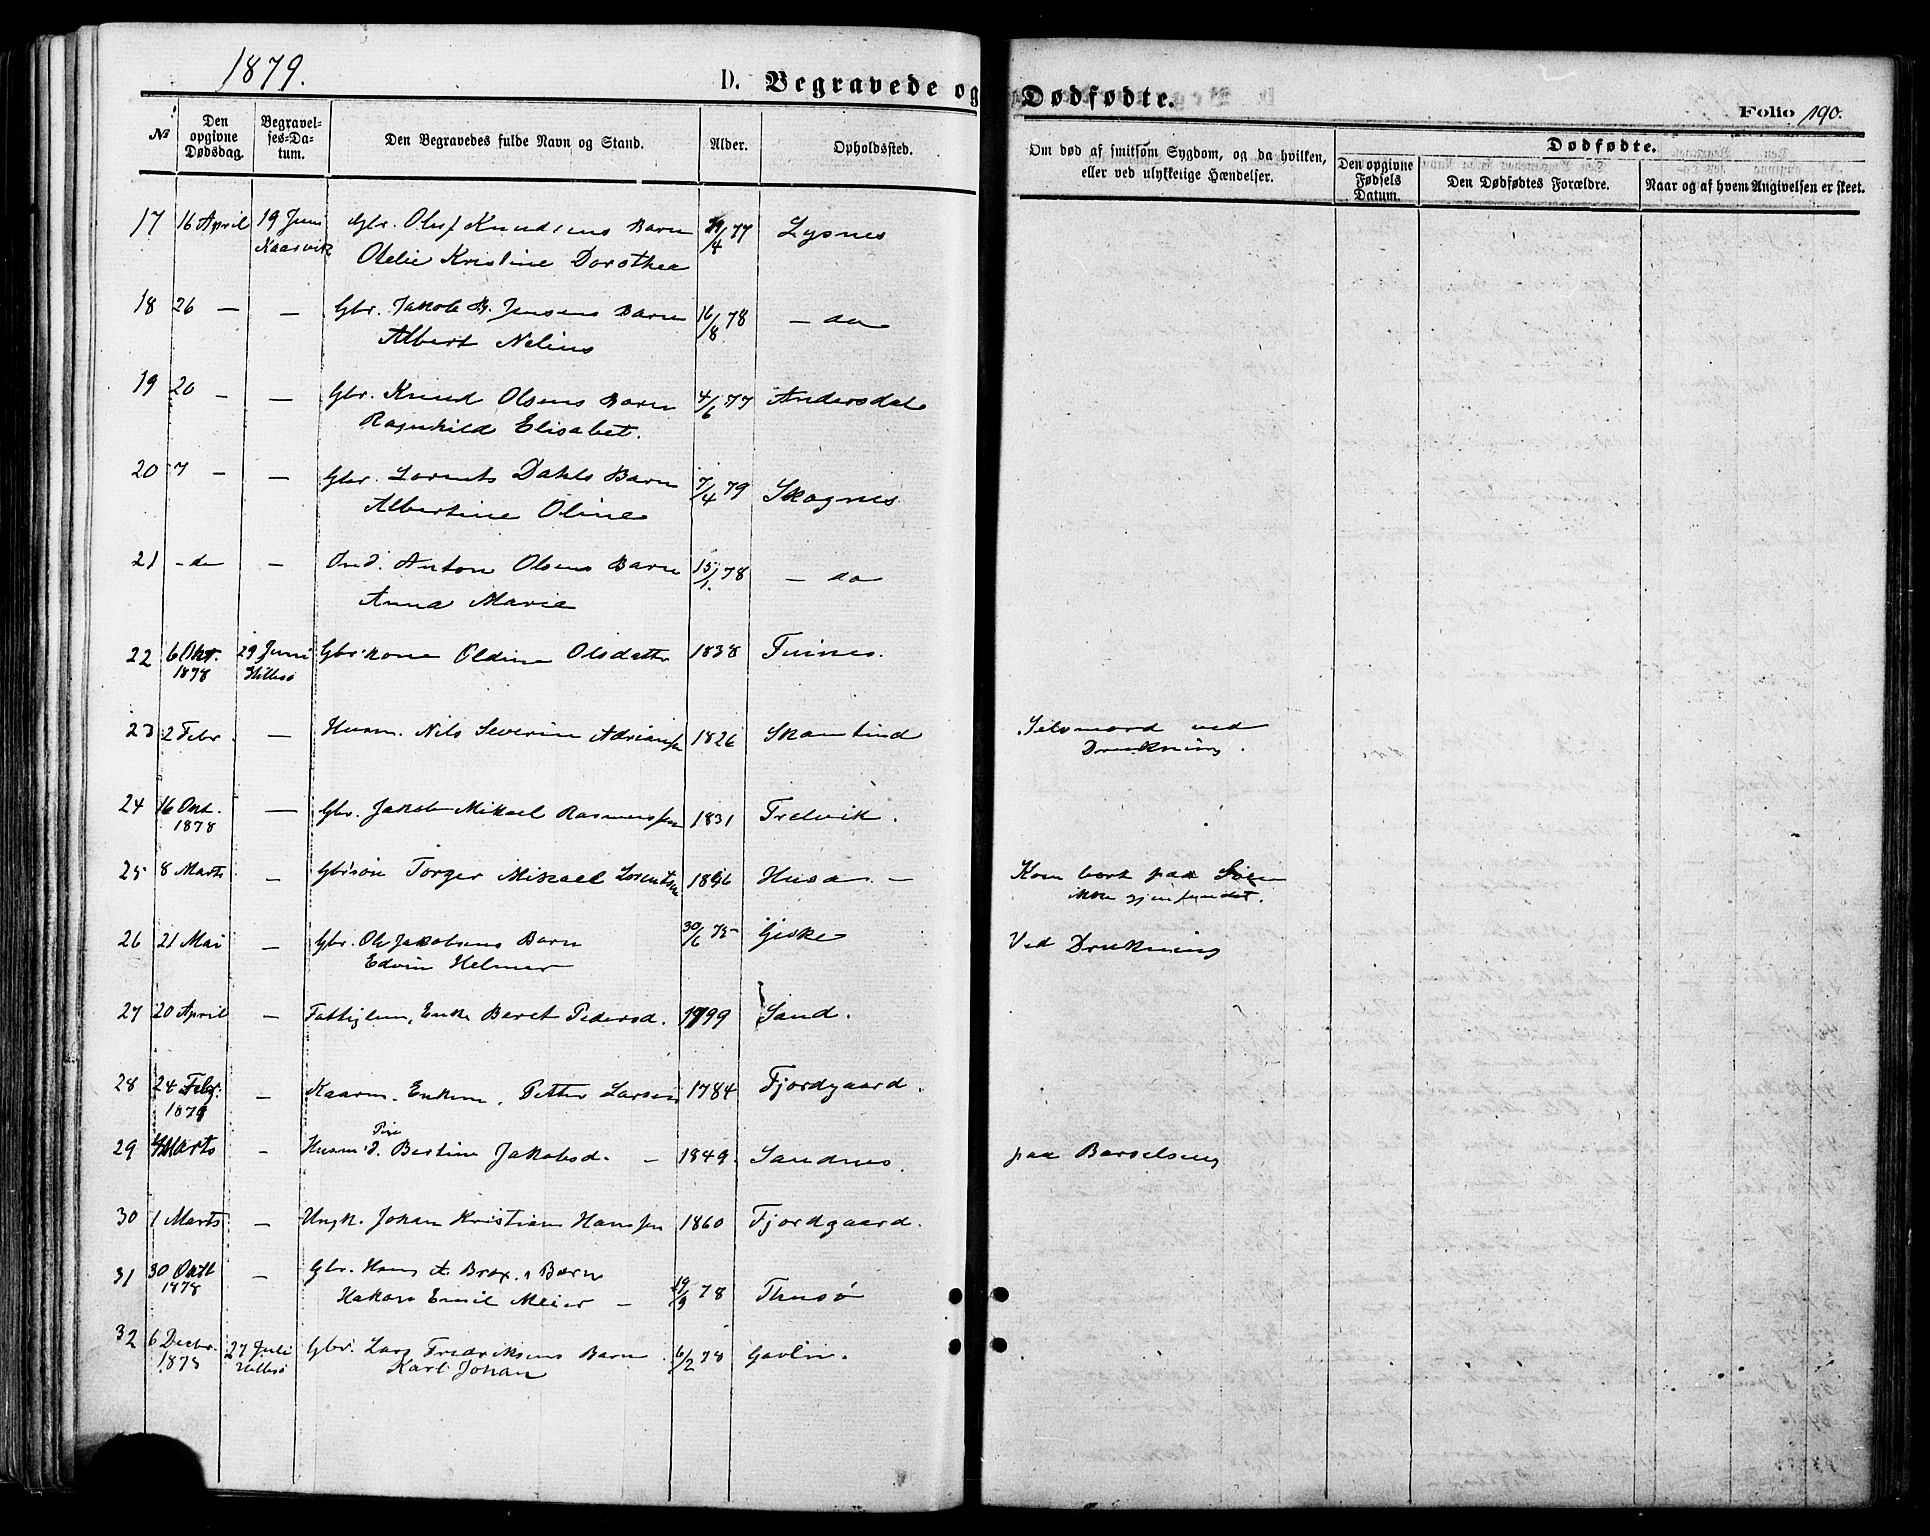 1879.
D. Begravede og Dødfødte.
Folio 190.
№
Den opgivne Dødsdag.
Begravelses-Datum.
Den Begravedes fulde Navn og Stand.
Alder.
Opholdssted.
Om død af smitsom Sygdom, og da hvilken, eller ved ulykkelige Hændelser.
Dødfødte.
Den opgivne Fødsels Datum.
Den Dødfødtes Forældre.
Naar og af hvem Angivelsen er skeet.
17 16 April 19 Juni Gbr. Oluf Knudsens Barn /4 77 Lysnes
Kaarvik Olelie Kristine Dorothea
18 26 — — Gbr. Jakob B. Jensens Barn 16/8 78 — do
Albert Nelius
19 20 — — Gbr. Knud Olsens Barn 4/6 77 Andersdal
Ragnhild Elisabet.
20 7 — — Gbr. Lorents Dahls Barn 7/4 79 Skognes
Albertine Oline
21 - do — Ind. Anton Olsens Barn 15/1 78 — do
Anna Marie
22 6 Okt. 29 Juni Gbr.kone Oldine Olsdatter 1838 Tuines.
1878 Hillesø
23 2 Febr. — Husm. Nils Severin Adriansen 1826 Skamtind Selvmord ved
Drukning.
24 16 Okt. — Gbr. Jakob Mikael Rasmussen 1831 Trelvik.
1878
25 8 Marts — Gbrsøn Torger Mikael Lorentsen 1856 Husa — Kom bort paa Søen
ikke gjenfundet.
26 21 Mai — Gbr. Ole Jakobsens Barn 30/6 75 Giske Ved Drukning
Edvin Helmer
27 20 April — Fattiglem, Enke Beret Pedersd. 1799 Sand.
28 24 Febr. — Kaarm. Enkem. Petter Larsen 1784 Fjordgaard.
1879
29 4 Marts — Husm.d. Pige Bertine Jakobsd. — 1849. Sandnes. paa Barselseng
30 1 Marts — Ungk. Johan Kristian Hansen 1860 Fjordgaard.
31 30 Oktb — Gbr. Hans A. Brox.s Barn
1878 Hakon Emil Meier — 19/9 78 Thusø
32 6 Decbr. 27 Juli Gbr. Lars Fredriksens Barn 6/2 78 Gavlin.
1878 Hillesø Karl Johan